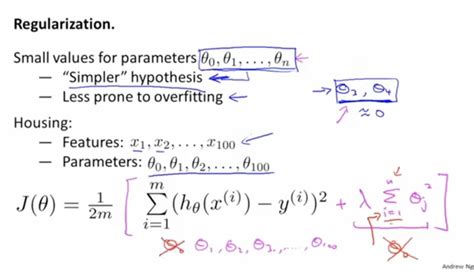 Regularization.
Small values for parameters θ₀, θ₁, . . . , θₙ
— "Simpler" hypothesis
— Less prone to overfitting
θ₃, θ₄
≈ 0
Housing:
— Features: x₁, x₂, . . . , x₁₀₀
— Parameters: θ₀, θ₁, θ₂, . . . , θ₁₀₀
J(θ) = 1/2m [ ∑ᵢ₌₁ᵐ (hθ(x⁽ⁱ⁾) − y⁽ⁱ⁾)² + λ ∑ᵢ₌₁ⁿ θⱼ² ]
θ₀ θ₁, θ₂, θ₃, ..., θ₁₀₀
θ₀
Andrew Ng